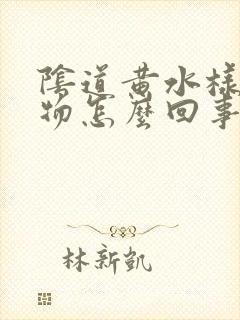 陰道黄水樣
物怎麼回事
林新凱